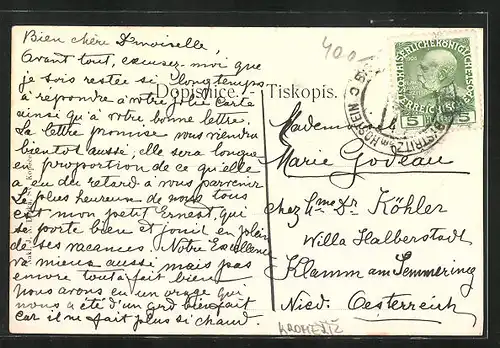 Bien chère Dmoiselle,
Avant tout, excusez-moi que
je sois restée si longtemps
à répondre à votre jolie carte
ainsi qu'à votre bonne lettre.
La lettre promise vous viendra
bientot aussi, elle sera longue
en proportion de ce qu'elle
a eu du retard à vous parvenir
Le plus heureux de nous tous
est mon petit Ernest, qui
se porte bien et jouit en plein
de ses vacances. Notre Excellence
va mieux aussi mais pas
encore tout à fait bien.
Nous avons eu un orage qui
nous a été d'un grd bienfait
car il ne fait plus si chaud.
Dopisnice. Tiskopis.
400
5 5
BYSTRITZ am HOSTEIN
Madem
Marie Godeau
chez Mme Dr Köhler
Willa Halberstadt
Klamm am Semmering
Nied. Oesterreich